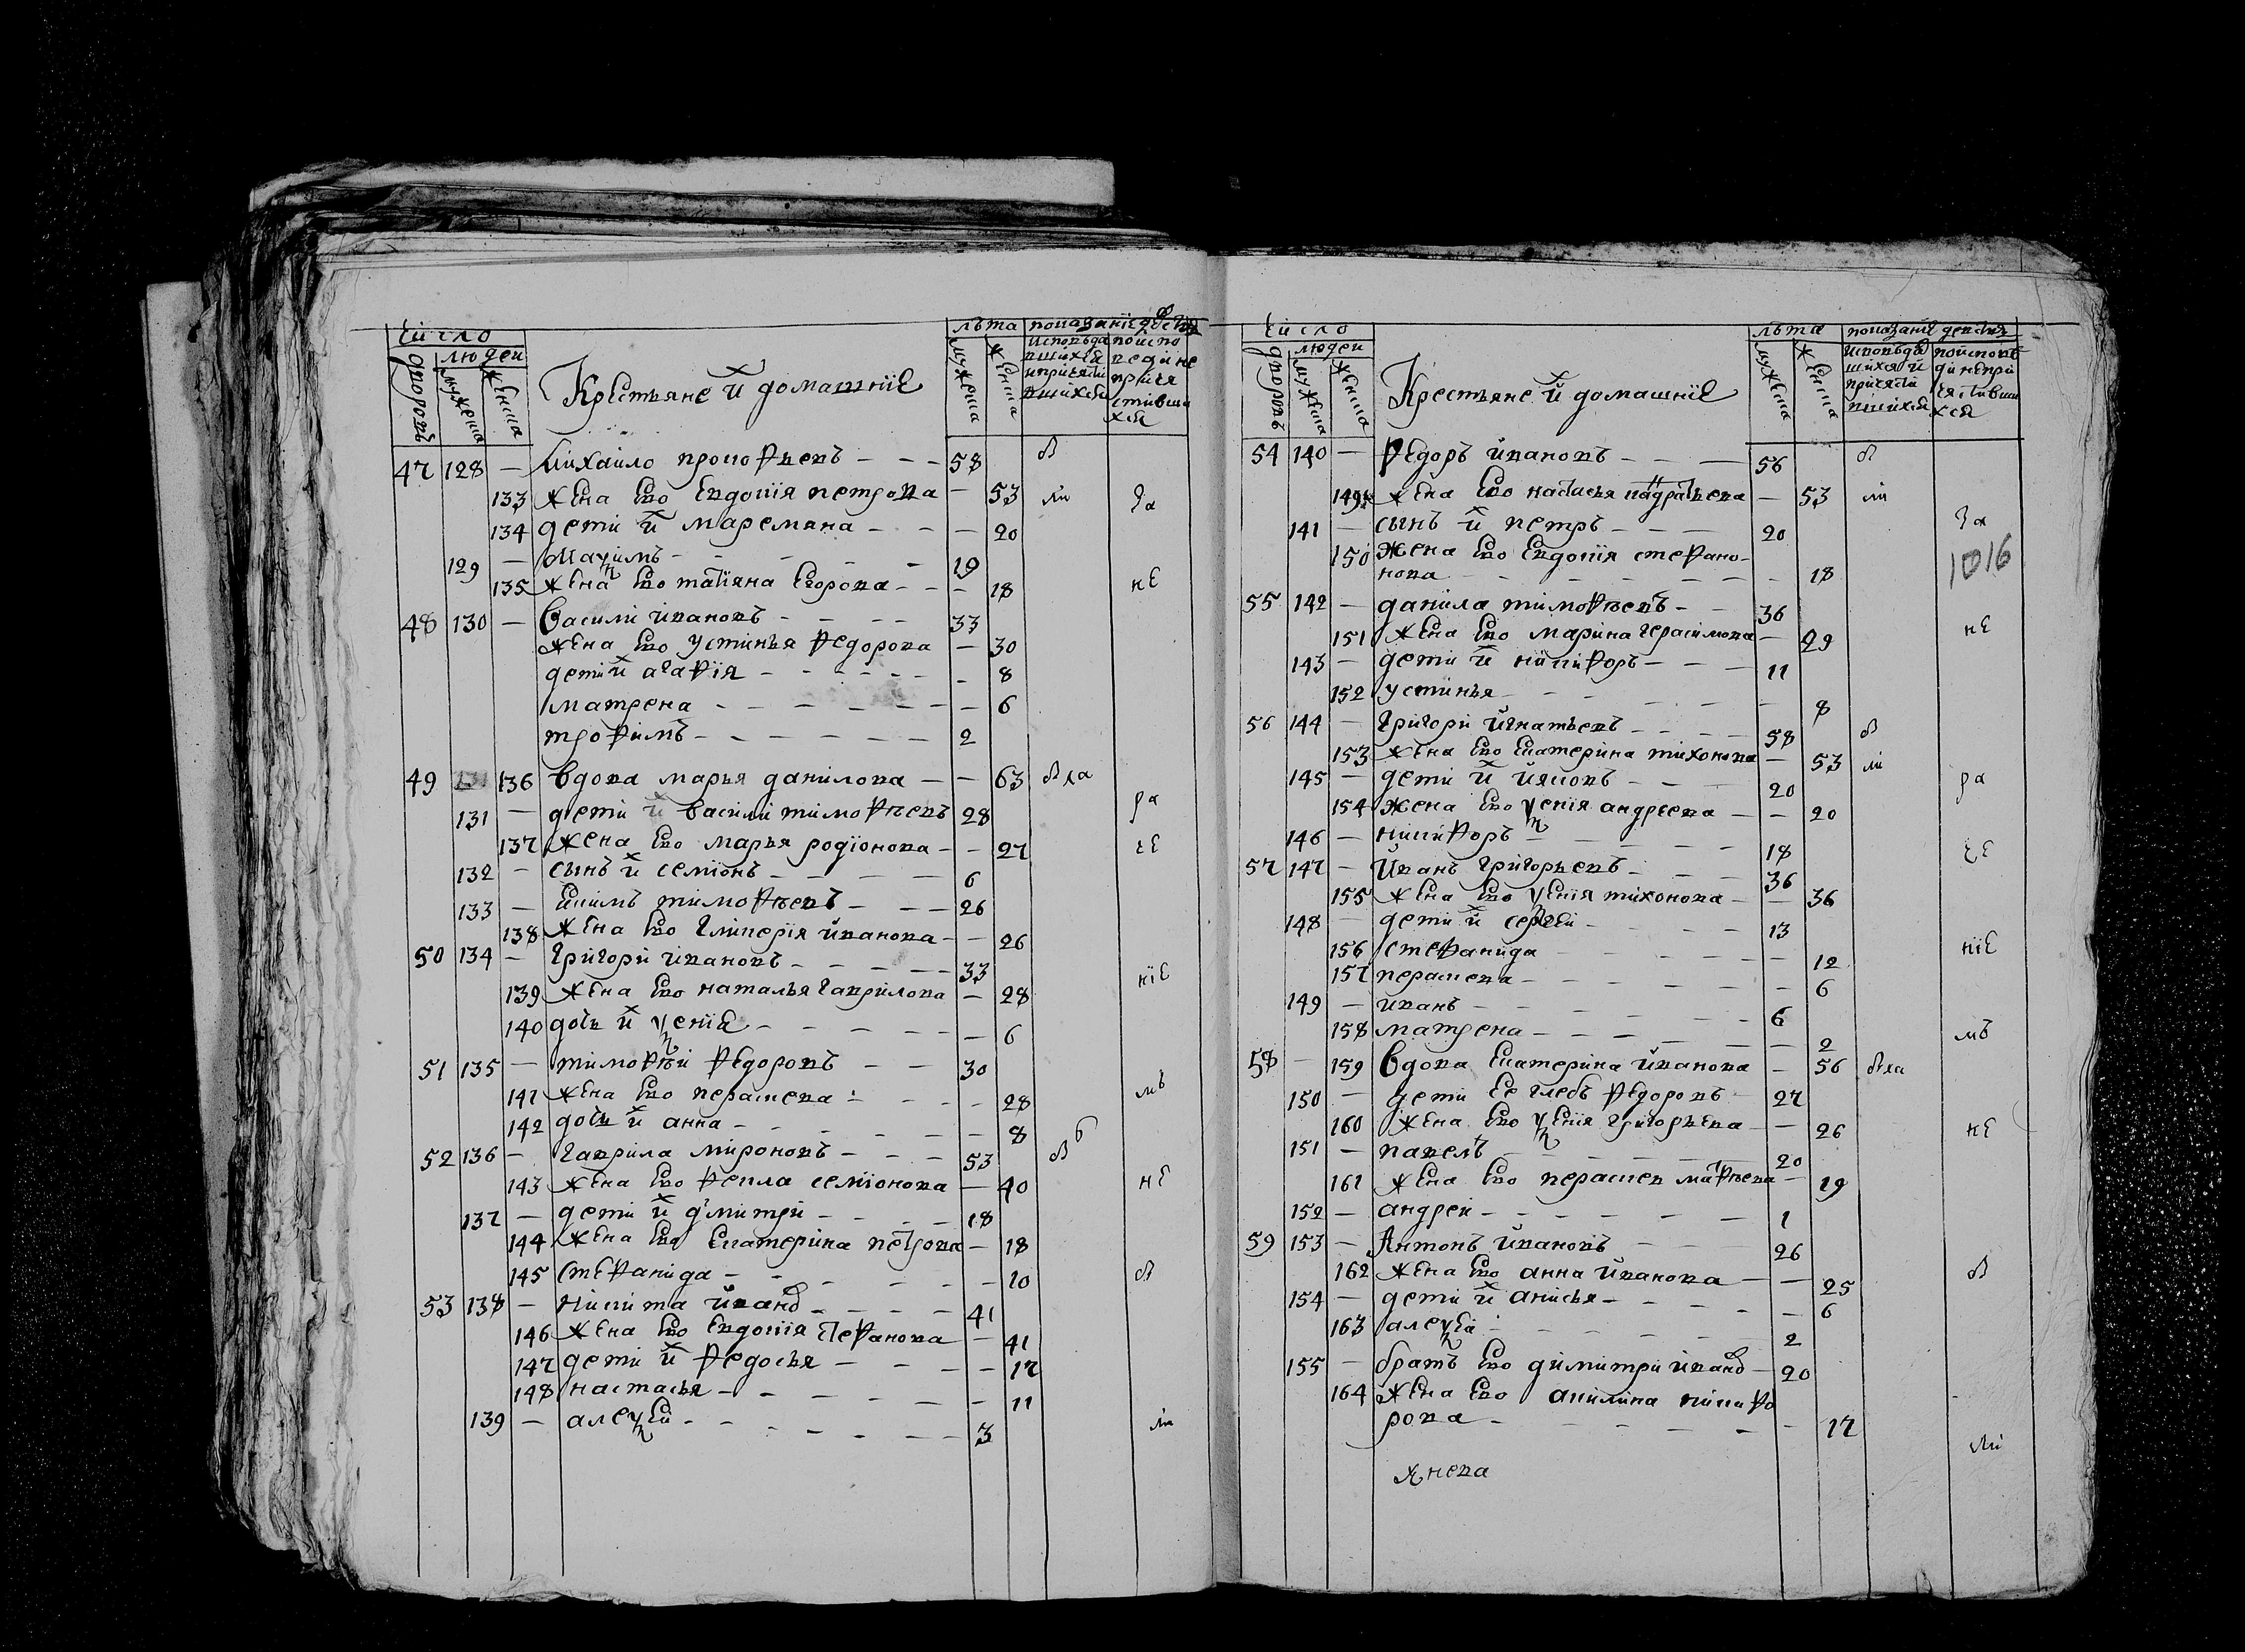 число
людей
дворовъ
мужеска
женска
Крестьяне й домашнїе
лѣта
мужеска
женска
показанїе действа
исповѣда
вшихся
и причасти
вшихся
по испо
веди не
прича
стивши
хся
47 128 — Михаило прокофьевъ — — — 58 б
133 жена ево евдокїя петрова — 53 ли за
134 дети й маремяна — — — 20
129 — Маѯимъ — — — 19
135 жена ево татїяна егорова — — — 18 не
48 130 — Василиi ивановъ — — — 33
жена ево устинья федорова — 30
дети й агафїя — — — 8
матрена — — — 6
трофимъ — — — 2
49 136 вдова марья данилова — — 63 была
131 — дети й василиi тимофѣевъ 28 ра
137 жена ево марья родїонова — — 27 че
132 — сынъ й семїонъ — — — 6
133 — екимъ тимофѣевъ — — — 26
138 жена ево гликерїя йванова — — 26
50 134 — Григорй ивановъ — — — 33
139 жена ево наталья гаврилова — 28 нїе
140 дочь й ѯенїя — — — 6
51 135 — тимофѣй федоровъ — — 30
141 жена ево параскева — — — 28 мъ
142 дочь й анна — — — 8
52 136 — гаврила мироновъ — — — 53 б б
143 жена ево фекла семїонова — 40 не
137 — дети й дмитрй — — — 18
144 жена ево екатерина петрова — 18
145 стефанида — — — 10 б
53 138 — никита йвано — — — 41
146 жена ево евдокїя стефанова — 41
147 дети й федосья — — — 17
148 настасья — — — 11
139 — алеѯей — — — 3 ли
число
людей
дворовъ
мужеска
женска
Крестьяне й домашнїе
лѣта
мужеска
женска
показанїе действа
исповѣдав
шихся й
причасти
вшихся
по исповѣ
ди непри
частивши
хся
54 140 — федоръ ивановъ — — — 56 б
149 жена ево настасья кадратьева — 53 ли
141 — сынъ й петръ — — — 20 за
150 жена ево евдокїя стефано-
нова — — — 18
1016
55 142 — данила тимофѣевъ — — 36
151 жена ево марина герасимова — 29 не
143 — дети й никифоръ — — — 11
152 устинья — — — 8
56 144 — Григорй йгнатьевъ — — — 58 б
153 жена ево екатерина тихонова — 53 ли
145 — дети й йяковъ — — — 20 ра
154 жена ево ѯенїя андреева — — 20
146 — никифоръ — — — 18 че
57 147 — йванъ григорьевъ — — — 36
155 жена ево ѯенїя тихонова — — 36
148 — дети й сергей — — — 13
156 стефанида — — — 12 нїе
157 параскева — — — 6
149 — иванъ — — — 6
158 матрена — — — 2 мъ
58 — 159 вдова екатерина йванова — 56 была
150 — дети ее глебъ федоровъ — 27
160 жена ево ѯенїя григорьева — — 26 не
151 — павелъ — — — 20
161 жена ево параскев матфѣева — 19
152 — андрей — — — 1
59 153 — Антонъ йвановъ — — 26
162 жена ево анна йванова — — 25 б
154 — дети й анисья — — — 6
163 алеѯей — — — 2
155 — братъ ево димитрй йвано — 20
164 жена ево акилина никифо
рова — — — 17
ли